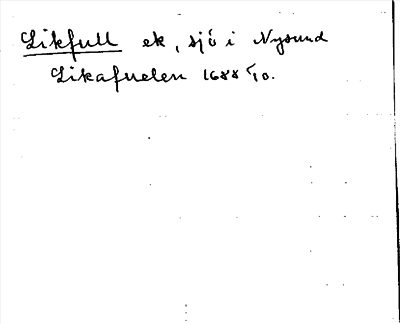 Likfull ek, sjö i Nysund
Likafuelen 1688 1/10.